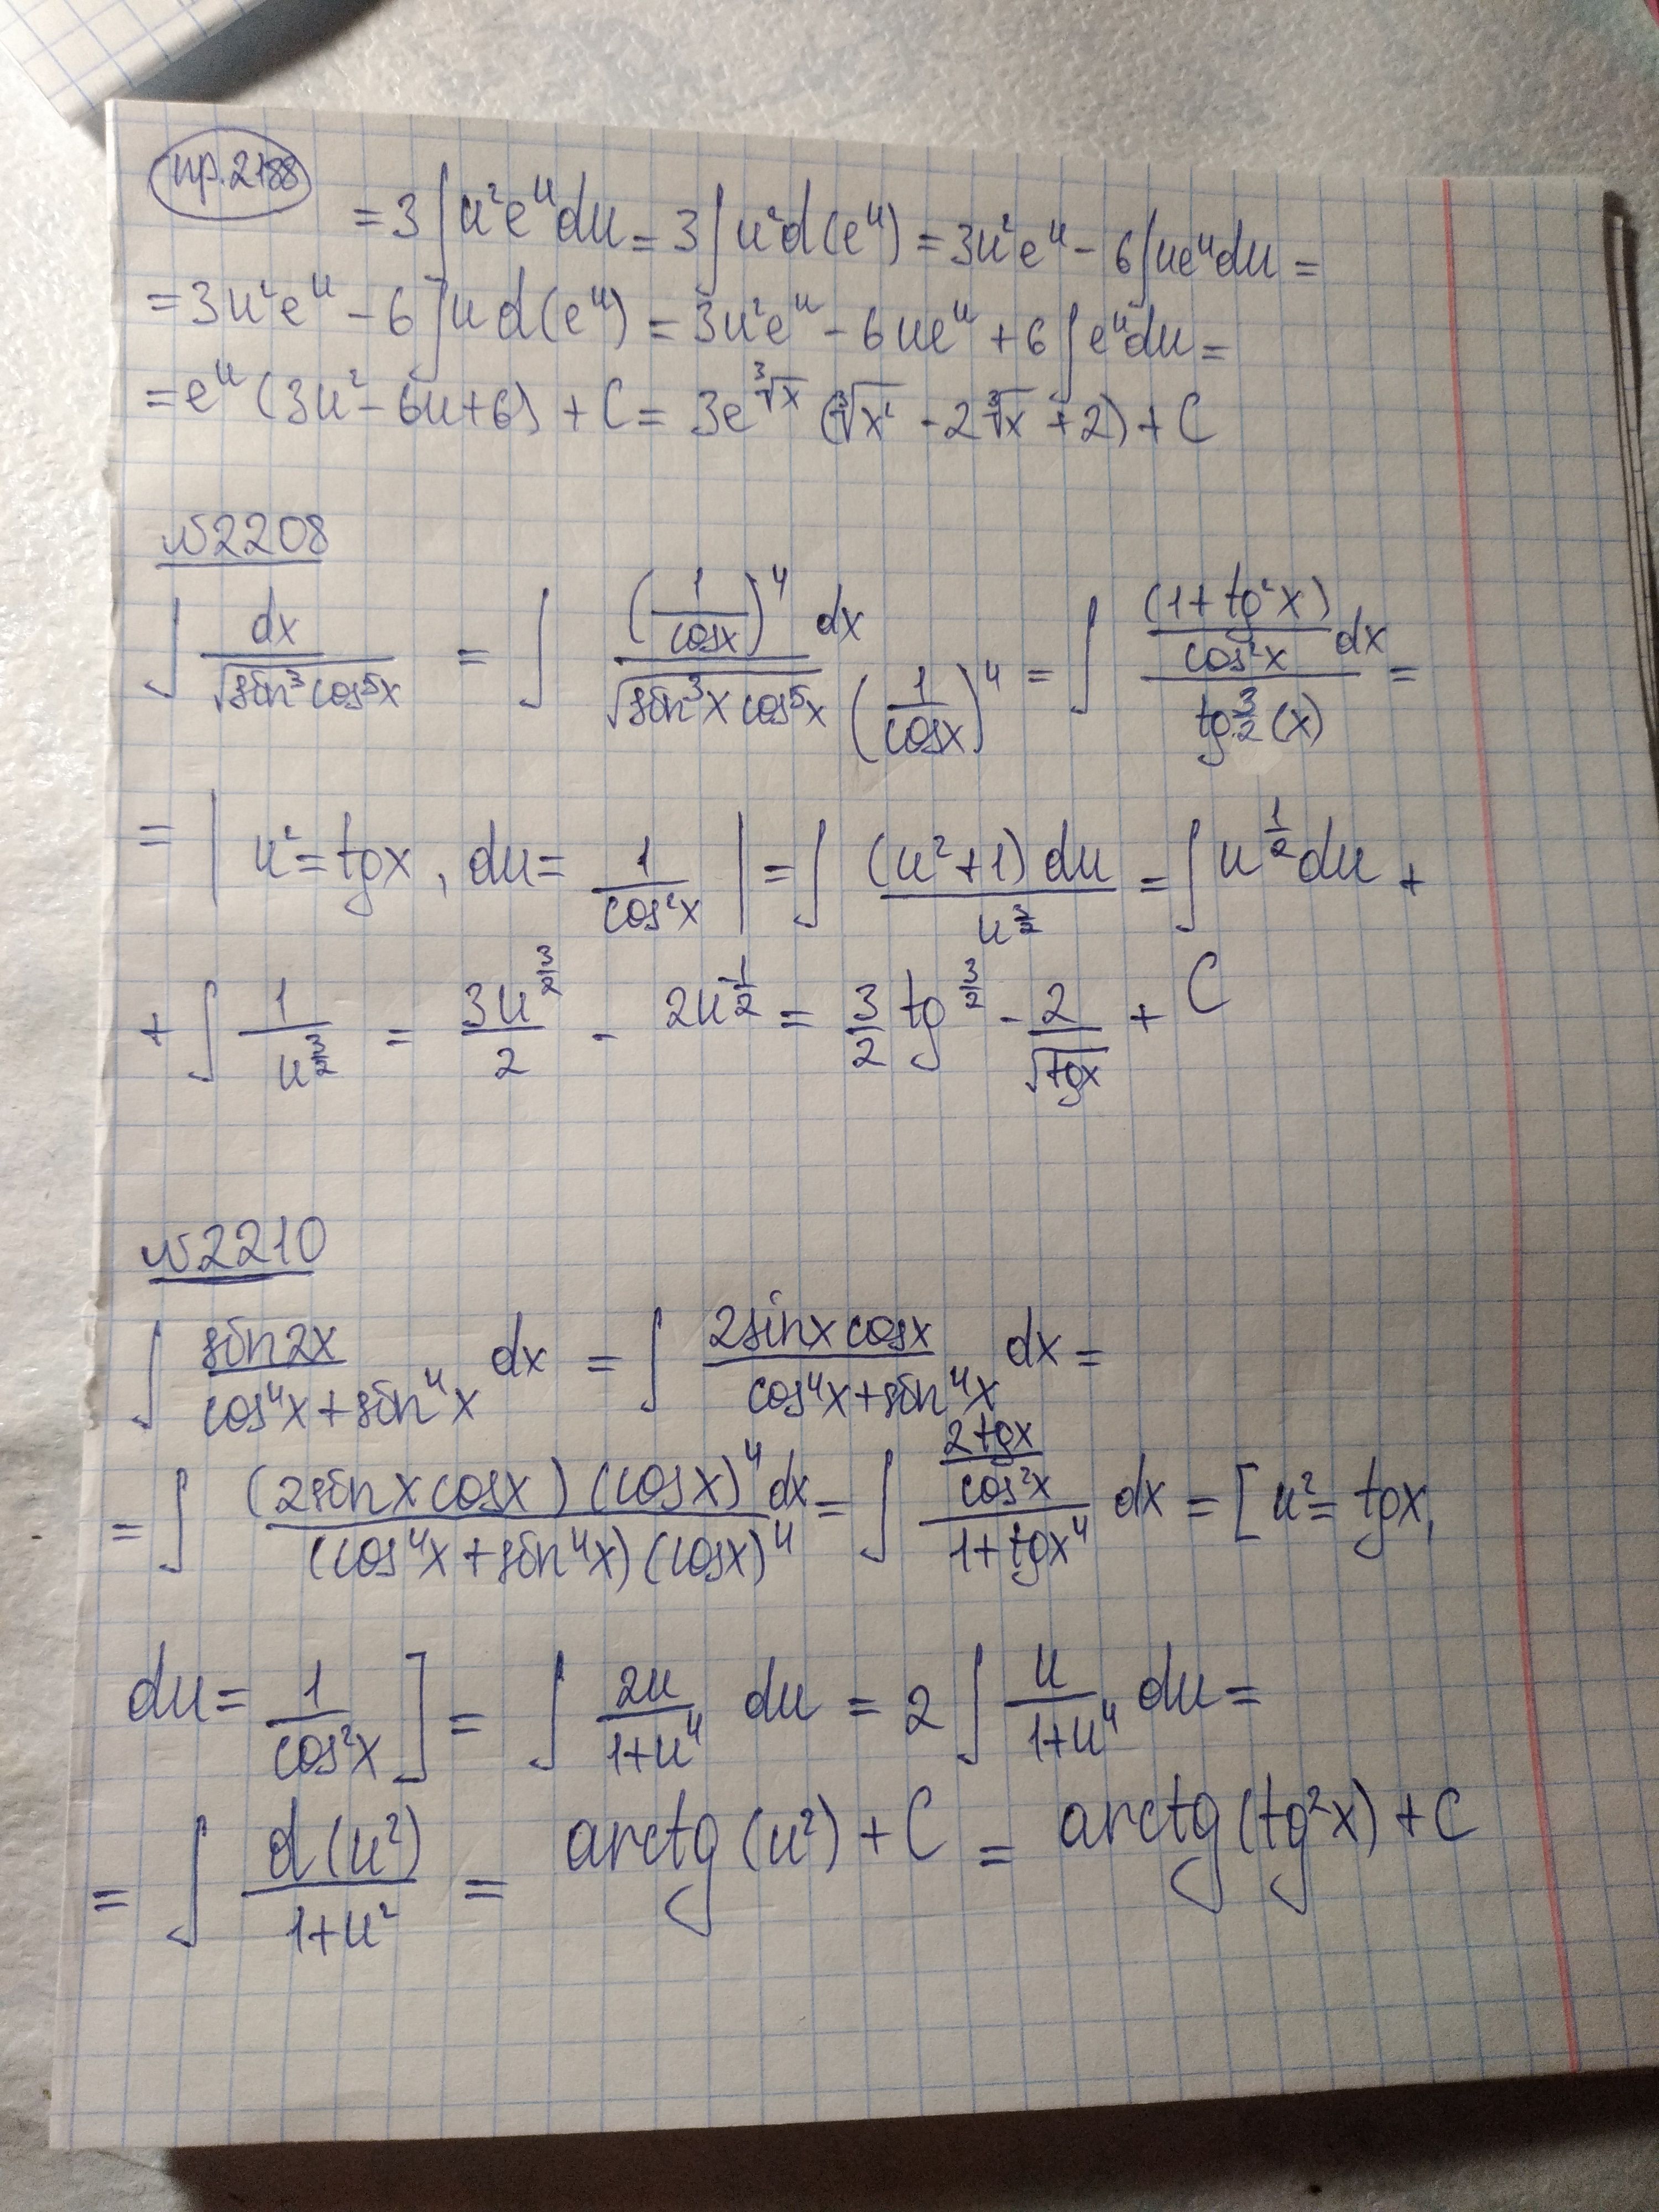 пр.2188
= 3∫u²eᵘdu = 3∫u²d(eᵘ) = 3u²eᵘ - 6∫ueᵘdu =
= 3u²eᵘ - 6∫u d(eᵘ) = 3u²eᵘ - 6ueᵘ + 6∫eᵘdu =
= eᵘ(3u² - 6u + 6) + C = 3e^(∛x) (∛x² - 2∛x + 2) + C
№2208
∫ dx/√(sin³cos⁵x) = ∫ (1/cosx)⁴ dx / (√(sin³x cos⁵x) (1/cosx)⁴) = ∫ ((1+tg²x)/cos²x) dx / tg^(3/2)(x) =
= | u² = tgx, du = 1/cos²x | = ∫ (u²+1) du / u^(3/2) = ∫ u^(1/2) du +
+ ∫ 1/u^(3/2) = 3u^(3/2)/2 - 2u^(-1/2) = 3/2 tg^(3/2) - 2/√tgx + C
№2210
∫ sin2x/(cos⁴x + sin⁴x) dx = ∫ 2sinx cosx/(cos⁴x + sin⁴x) dx =
= ∫ (2sinx cosx)(cosx)⁴ dx / ((cos⁴x + sin⁴x)(cosx)⁴) = ∫ (2tgx/cos²x)/(1+tgx⁴) dx = [u² = tgx,
du = 1/cos²x] = ∫ 2u/(1+u⁴) du = 2∫ u/(1+u⁴) du =
= ∫ d(u²)/(1+u²) = arctg(u²) + C = arctg(tg²x) + C